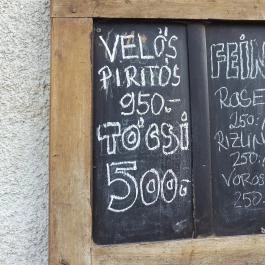 VELŐS
PIRITÓS
950.-
TÓCSI
500.-
FEIN
ROSE
250.-
RIZLIN
250.-
VÖRÖS
250.